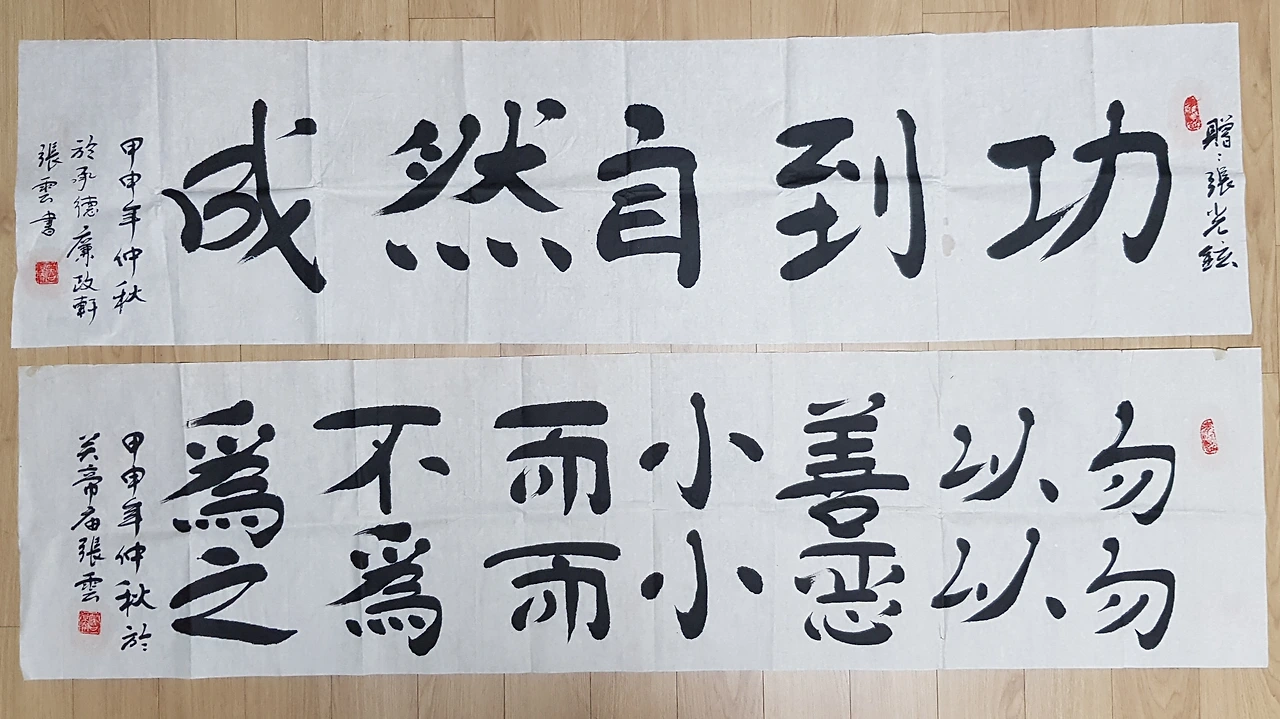 贈:張光鉉
功到自然成
甲申年仲秋
於承德廉政軒
張雲書
勿以善小而不爲
勿以惡小而爲之
甲申年仲秋於
关帝庙張雲